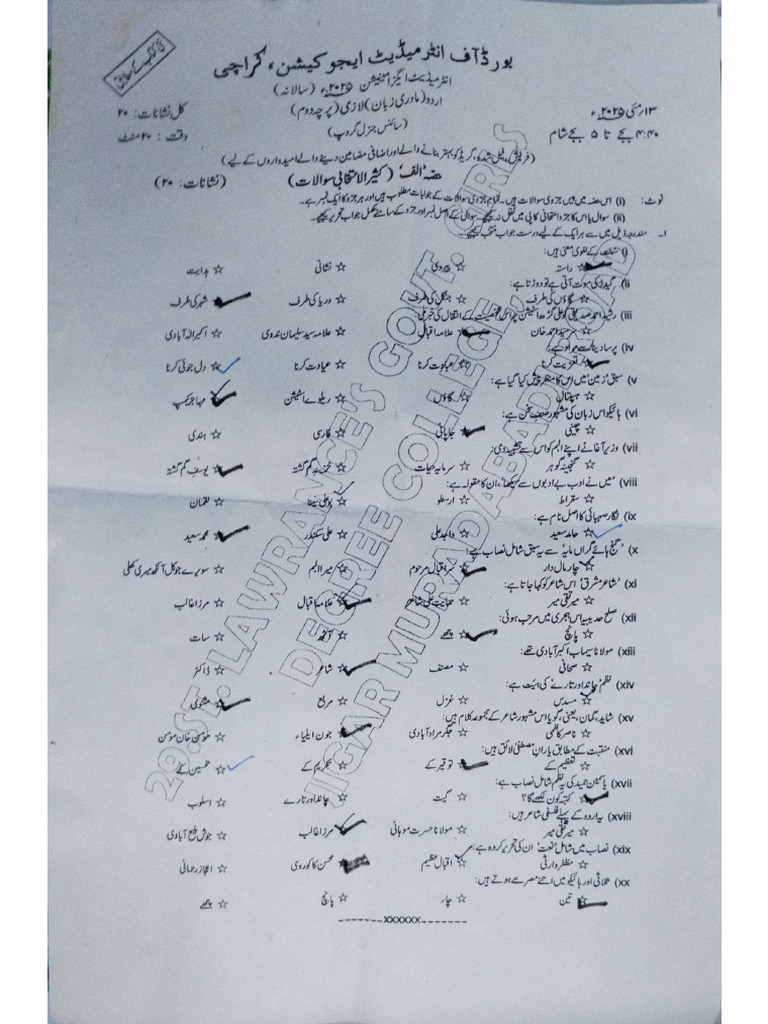 نئی کتاب کے مطابق
بورڈ آف انٹرمیڈیٹ ایجوکیشن، کراچی
انٹرمیڈیٹ ایگزامینیشن ۲۰۲۵ء (سالانہ)
۱۳ مئی ۲۰۲۵ء اردو (مادری زبان) لازمی (پرچہ دوم) کل نشانات: ۲۰
۴:۴۰ بجے تا ۵ بجے شام (سائنس جنرل گروپ) وقت: ۲۰ منٹ
(فریش، فیل شدہ، گریڈ کو بہتر بنانے والے اور اضافی مضامین دینے والے امیدواروں کے لیے)
حصہ 'الف' (کثیر الانتخابی سوالات) (نشانات: ۲۰)
نوٹ: (i) اس حصہ میں بیس جزوی سوالات ہیں۔ تمام جزوی سوالات کے جوابات مطلوب ہیں اور ہر جزو کا ایک نمبر ہے۔
(ii) سوال یا اس کا جزو امتحانی کاپی میں نقل نہ کیجیے۔ سوال کے اصل نمبر اور جزو کے سامنے مکمل جواب تحریر کیجیے۔
۱۔ مندرجہ ذیل میں سے ہر ایک کے لیے درست جواب منتخب کیجیے۔
(i کے لغوی معنی ہیں:
☆ راستہ ☆ پیروی ☆ نشانی ☆ ہدایت
(ii گیدڑ کی موت آتی ہے تو دوڑتا ہے:
☆ گاؤں کی طرف ☆ جنگل کی طرف ☆ دریا کی طرف ☆ شہر کی طرف
(iii رشید احمد صدیقی کو علی گڑھ اسٹیشن پر اس شخصیت کے انتقال کی خبر ملی:
☆ سرسید احمد خان ☆ علامہ اقبال ☆ علامہ سید سلیمان ندوی ☆ اکبر الٰہ آبادی
(iv پرسا دینا سے مراد ہے:
☆ تعزیت کرنا ☆ عبادت کرنا ☆ عیادت کرنا ☆ دل جوئی کرنا
(v سبق 'زمین' میں اس کا منظر پیش کیا گیا ہے:
☆ ہسپتال ☆ گاؤں ☆ ریلوے اسٹیشن ☆ مہاجر کیمپ
(vi ہائیکو اس زبان کی مشہور صنف سخن ہے:
☆ چینی ☆ جاپانی ☆ فارسی ☆ ہندی
(vii وزیر آغا نے اپنے البم کو اس سے تشبیہ دی:
☆ گنجینۂ گوہر ☆ سرمایہ حیات ☆ خزینۂ گم گشتہ ☆ یوسف گم گشتہ
(viii 'میں نے ادب بے ادبوں سے سیکھا'، ان کا مقولہ ہے:
☆ سقراط ☆ ارسطو ☆ بوعلی سینا ☆ لقمان
(ix نگار صہبائی کا اصل نام ہے:
☆ حامد سعید ☆ واجد علی ☆ علی سکندر ☆ محمد سعید
(x 'گنج ہائے گراں مایہ' سے یہ سبق شامل نصاب ہے:
☆ چار مال دار ☆ سر اقبال مرحوم ☆ میرا البم ☆ سویرے جو کل آنکھ میری کھلی
(xi 'شاعر مشرق' اس شاعر کو کہا جاتا ہے:
☆ میر تقی میر ☆ حمایت علی شاعر ☆ علامہ اقبال ☆ مرزا غالب
(xii صلح حدیبیہ اس ہجری میں مرتب ہوئی:
☆ پانچ ☆ چھے ☆ آٹھ ☆ سات
(xiii مولانا سیماب اکبرآبادی تھے:
☆ صحافی ☆ مصنف ☆ شاعر ☆ ڈاکٹر
(xiv نظم 'چاند اور تارے' کی ہیئت ہے:
☆ مسدس ☆ غزل ☆ مربع ☆ مثنوی
(xv شاید، گمان، یعنی، گویا اس مشہور شاعر کے مجموعہ کلام ہیں:
☆ ناصر کاظمی ☆ جگر مراد آبادی ☆ جون ایلیاء ☆ مومن خان مومن
(xvi منقبت کے مطابق یاران مصطفیٰ لائق ہیں:
☆ تعظیم کے ☆ توقیر کے ☆ تکریم کے ☆ تحسین کے
(xvii یاسمین حمید کی یہ نظم شامل نصاب ہے:
☆ کتبہ کون لکھے گا؟ ☆ گیت ☆ چاند اور تارے ☆ اسلوب
(xviii یہ اردو کے پہلے فلسفی شاعر ہیں:
☆ میر تقی میر ☆ مولانا حسرت موہانی ☆ مرزا غالب ☆ جوش ملیح آبادی
(xix نصاب میں شامل 'نعت' ان کی تحریر کردہ ہے:
☆ مظفر وارثی ☆ اقبال عظیم ☆ محسن کاکوروی ☆ اعجاز رحمانی
(xx ثلاثی اور ہائیکو میں اتنے مصرعے ہوتے ہیں:
☆ تین ☆ چار ☆ پانچ ☆ چھے
-------xxxxxx-------
29:ST. LAWRANCE'S GOVT. GIRLS
DEGREE COLLEGE
JIGAR MURADABADI ROAD